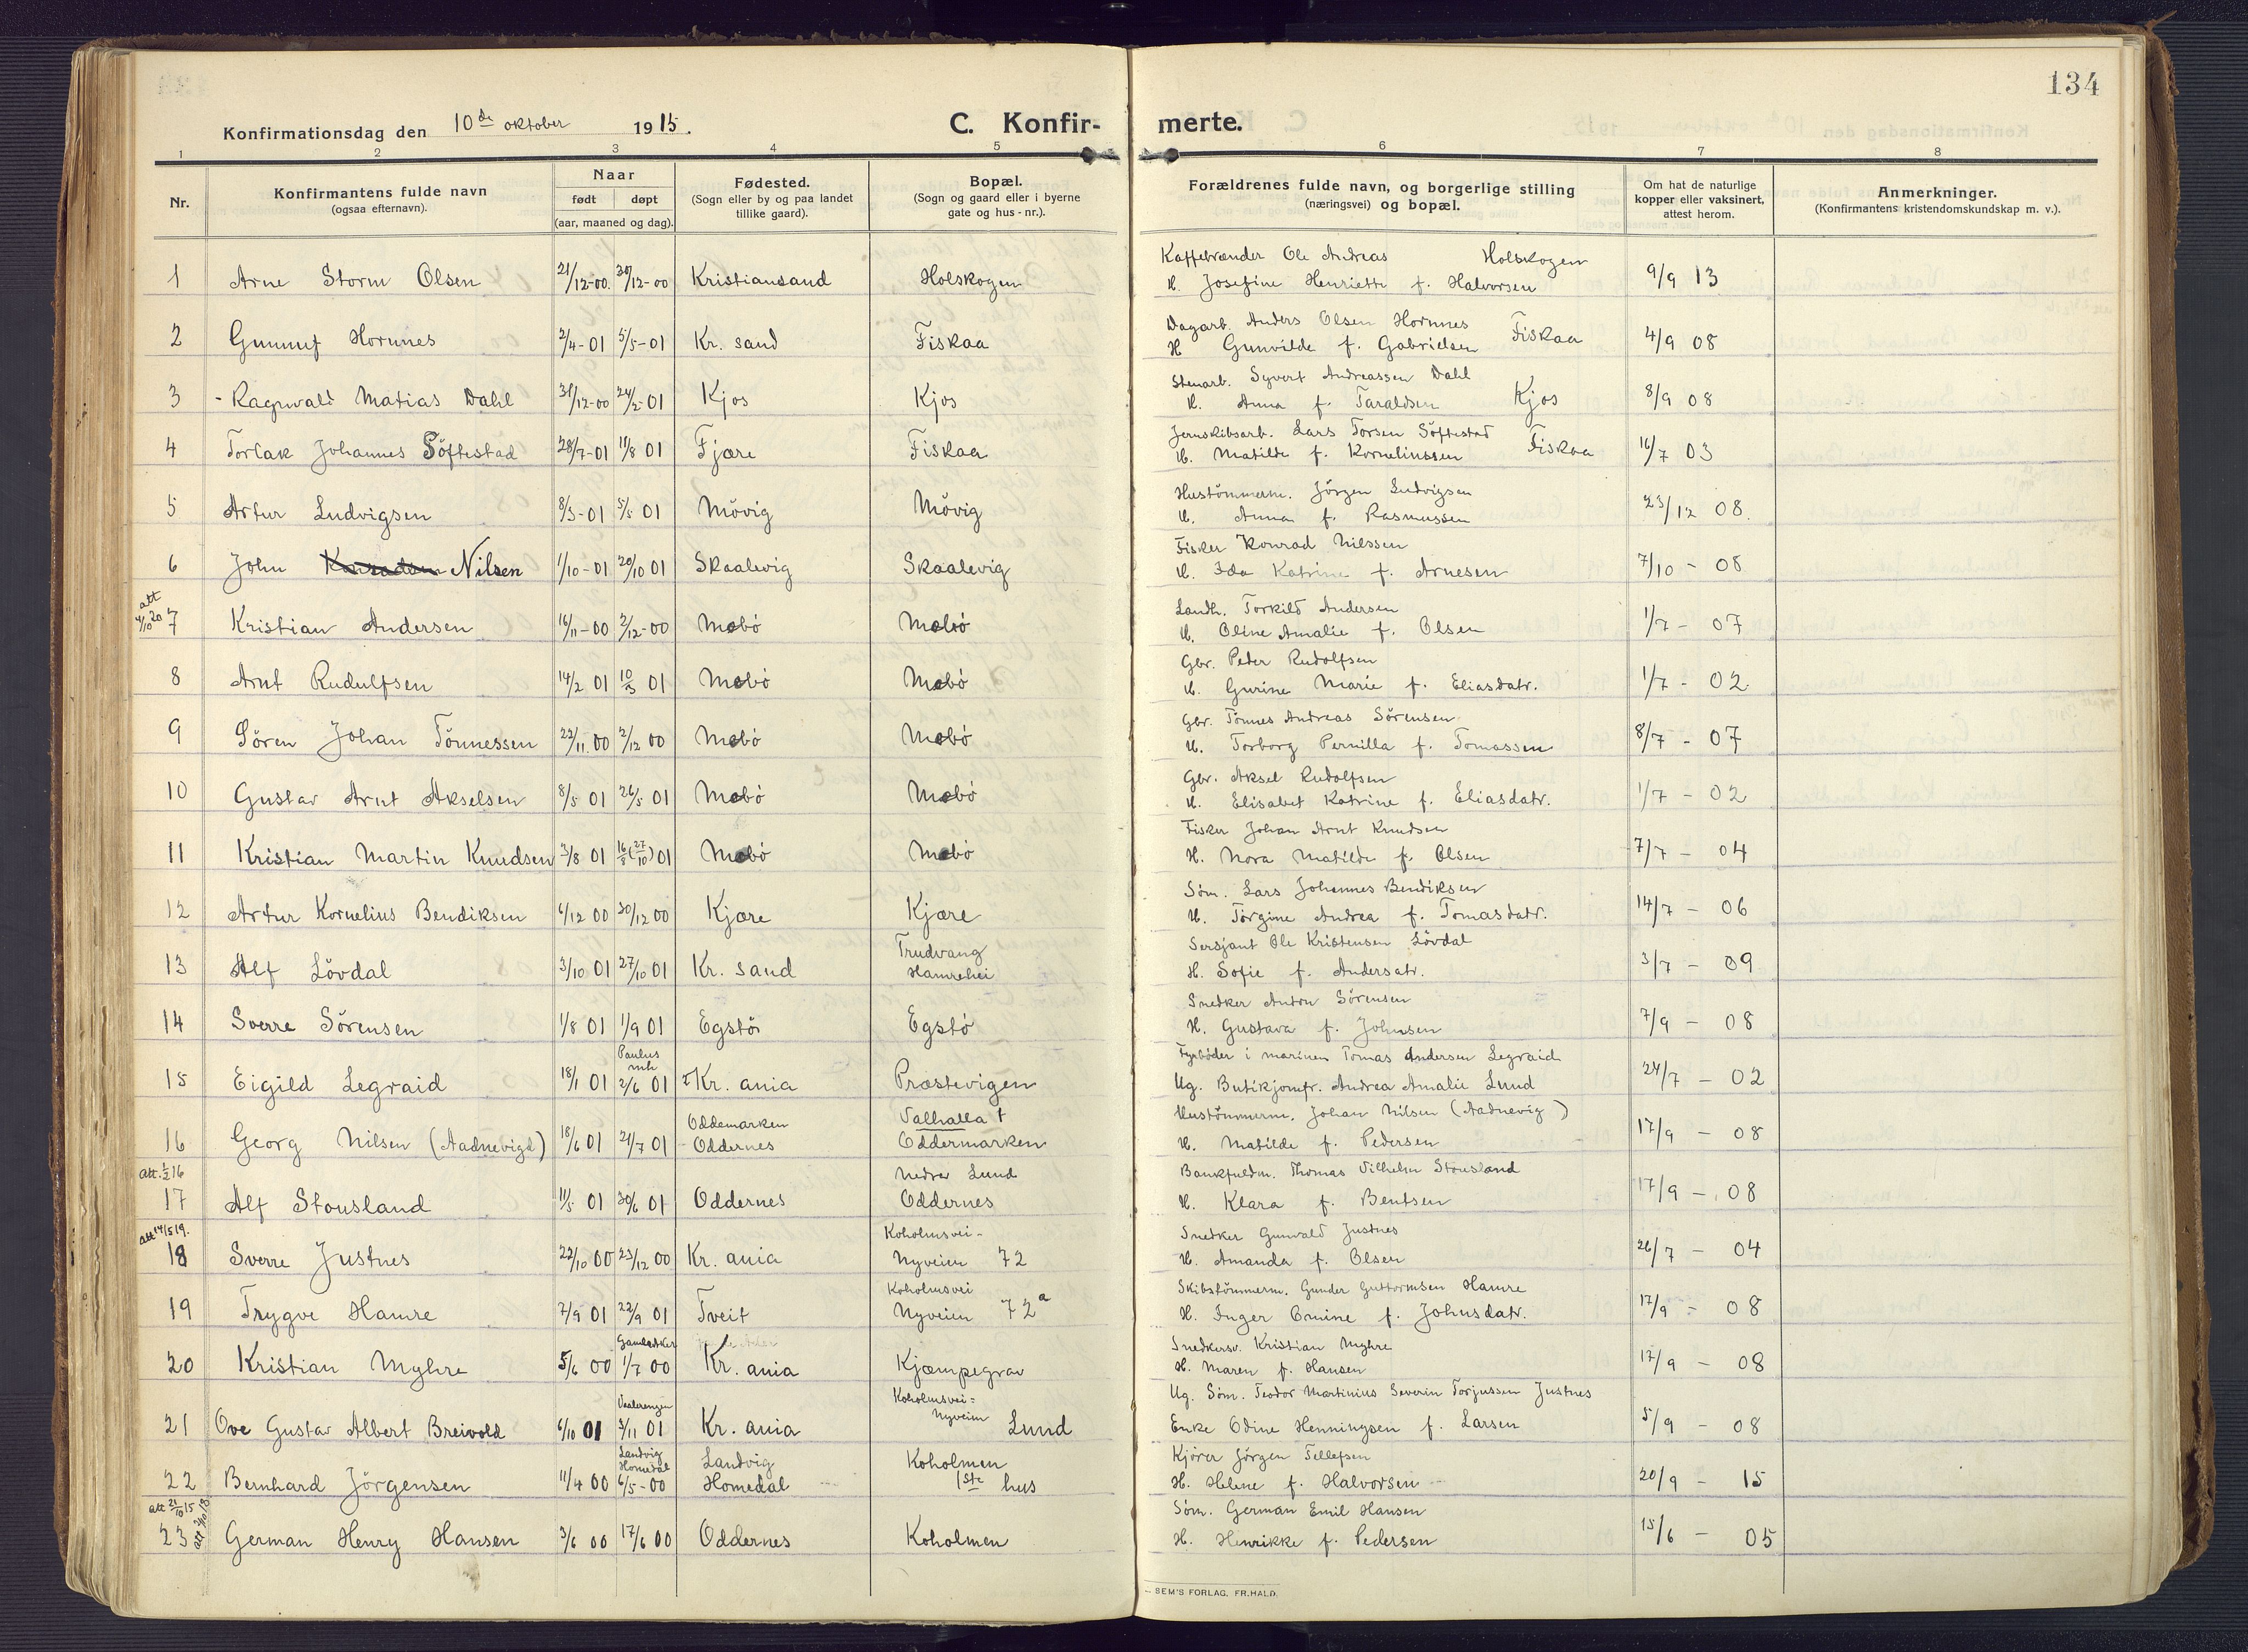 134
Konfirmationsdag den 10de oktober 1915.
C. Konfir-merte.
1 2 3 4 5 6 7 8
Nr.
Konfirmantens fulde navn
(ogsaa efternavn).
Naar
født døpt
(aar, maaned og dag).
Fødested.
(Sogn eller by og paa landet
tillike gaard).
Bopæl.
(Sogn og gaard eller i byerne
gate og hus-nr.).
Forældrenes fulde navn, og borgerlige stilling
(næringsvei) og bopæl.
Om hat de naturlige
kopper eller vaksinert,
attest herom.
Anmerkninger.
(Konfirmantens kristendomskundskap m. v.).
Kaffebrænder Ole Andreas Holskogen
1 Arne Storm Olsen 21/12-00. 30/12-00 Kristiansand Holskogen H. Josefine Henriette f. Halvorsen 9/9 13
Dagarb. Anders Olsen Hornnes
2 Gunnuf Hornnes 2/4-01 5/5-01 Kr. sand Fiskaa H Gunvilde f. Gabrielsen Fiskaa 4/9 08
Stenarb. Syvert Andreassen Dahl
3 - Ragnvald Matias Dahl 31/12-00 24/2-01 Kjos Kjos H. Anna f. Taraldsen Kjos 8/9 08
Jernskibsarb. Lars Torsen Söftestad
4 Torlak Johannes Söftestad 28/7-01 11/8 01 Fjære Fiskaa H. Matilde f. Korneliussen Fiskaa 16/7 03
Hustömmerm. Jörgen Ludvigsen
5 Artur Ludvigsen 8/3-01 5/5 01 Mövig Mövig H. Anna f. Rasmussen 23/12 08.
Fisker Konrad Nilssen
6 John Konradsen Nilsen 1/10-01 20/10 01 Skaalevig Skaalevig H. Ida Katrine f. Arnesen 7/10 - 08
att
4/10 20
Landh. Torkild Andersen
7 Kristian Andersen 16/11-00 2/12-00 Mebö Mebö H. Oline Amalie f. Olsen 1/7 - 07
Gbr. Peder Rudolfsen
8 Arnt Rudulfsen 14/2 01 10/3 01 Mebö Mebö H. Gurine Marie f. Eliasdatr. 1/7 - 02
Gbr. Tönnes Andreas Sörensen
9 Sören Johan Tönnessen 22/11. 00 2/12 00 Mebö Mebö H. Torborg Pernilla f. Tomassen 8/7 - 07
Gbr. Aksel Rudolfsen
10 Gustav Arnt Akselsen 8/5 01 26/5 01 Mebö Mebö H. Elisabet Katrine f. Eliasdatr. 1/7 - 02
Fisker Johan Arnt Knudsen
11 Kristian Martin Knudsen 3/8 01 16/8 (27/10) 01 Mebö Mebö H. Nora Matilde f. Olsen 7/7 - 04
Söm. Lars Johannes Bendiksen
12 Artur Kornelius Bendiksen 6/12 00 30/12 00 Kjære Kjære H. Törgine Andrea f. Tomasdatr. 14/7 - 06
Trudvang Sersjant Ole Kristensen Lövdal
13 Alf Lövdal 3/10 01 27/10 01 Kr. sand Hamrehei H. Sofie f. Andersatr. 3/7 - 09
Snedker Anton Sörensen
14 Sverre Sörensen 1/8 01 1/9 01 Egstö Egstö H. Gustava f. Johnsen 7/9 - 08
Paulus mh Fyrböder i marinen Tomas Andersen Legraid
15 Eigild Legraid 18/1 01 2/6 01 Kr. ania Præstevigen Ug. Butikjomfr. Andrea Amalie Lund 24/7 - 02
Oddemarken Valhalla t Hustömmerm. Johan Nilsen (Aadnevig)
16 Georg Nilsen (Aadnevigd) 18/6 01 21/7 01 Oddernes Oddermarken H. Matilde f. Pedersen 17/9 - 08
att. 1/2 16 Nedre Lund Bankfuldm. Thomas Vilhelm Stousland
17 Alf Stousland 11/5 01 30/6 01 Oddernes Oddernes H. Klara f. Bentsen 17/9 - 08
att 14/5 19. Koholmsvei- Snedker Gunvald Justnes
18 Sverre Justnes 22/10 00 23/12 00 Kr. ania Nyveien 72 H. Amanda f. Olsen 26/7 - 04
Koholmsvei Skibstömmerm. Gunder Guttormsen Hamre
19 Trygve Hamre 7/9 01 22/9 01 Tveit Nyveien 72a H. Inger Omine f. Johnsdatr. 17/9 - 08
Gamleaker Snedkersv. Kristian Myhre
20 Kristian Myhre 5/6 00 1/7 00 Kr. ania Kjæmpegrav H. Maren f. Hansen 17/9 - 08
Vaalerengen Koholmsvei= Ug. Söm. Teodor Martinius Severin Torjussen Justnes
21 Ove Gustav Albert Breivold 6/10 01 3/11 01 Kr. ania Nyveien Lund Enke Odine Henningsen f. Larsen 5/9 - 08
Landvig Homedal Landvig Koholmen Kjörer Jörgen Tellefsen
22 Bernhard Jörgensen 11/4 00 6/5-00 Homedal 1ste hus H. Helene f. Halvorsen 20/9 - 15
att 21/10 15 Söm. German Emil Hansen
23 German Henry Hansen 3/6 00 17/6 00 Oddernes Koholmen H. Henrikke f. Pedersen 15/6 - 05
SEM'S FORLAG, FR.HALD.